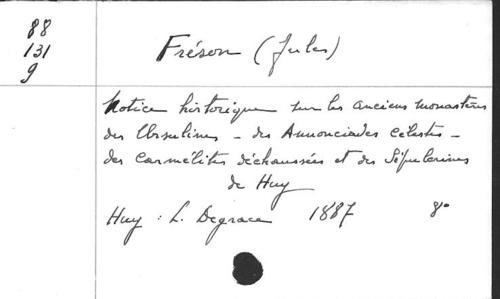 88
131
9
Fréson (Jules)
Notice historique sur les anciens monastères
des Ursulines - des Annonciades célestes -
des Carmélites déchaussées et des Sépulcrines
de Huy
Huy : L. Degrace 1887 8°